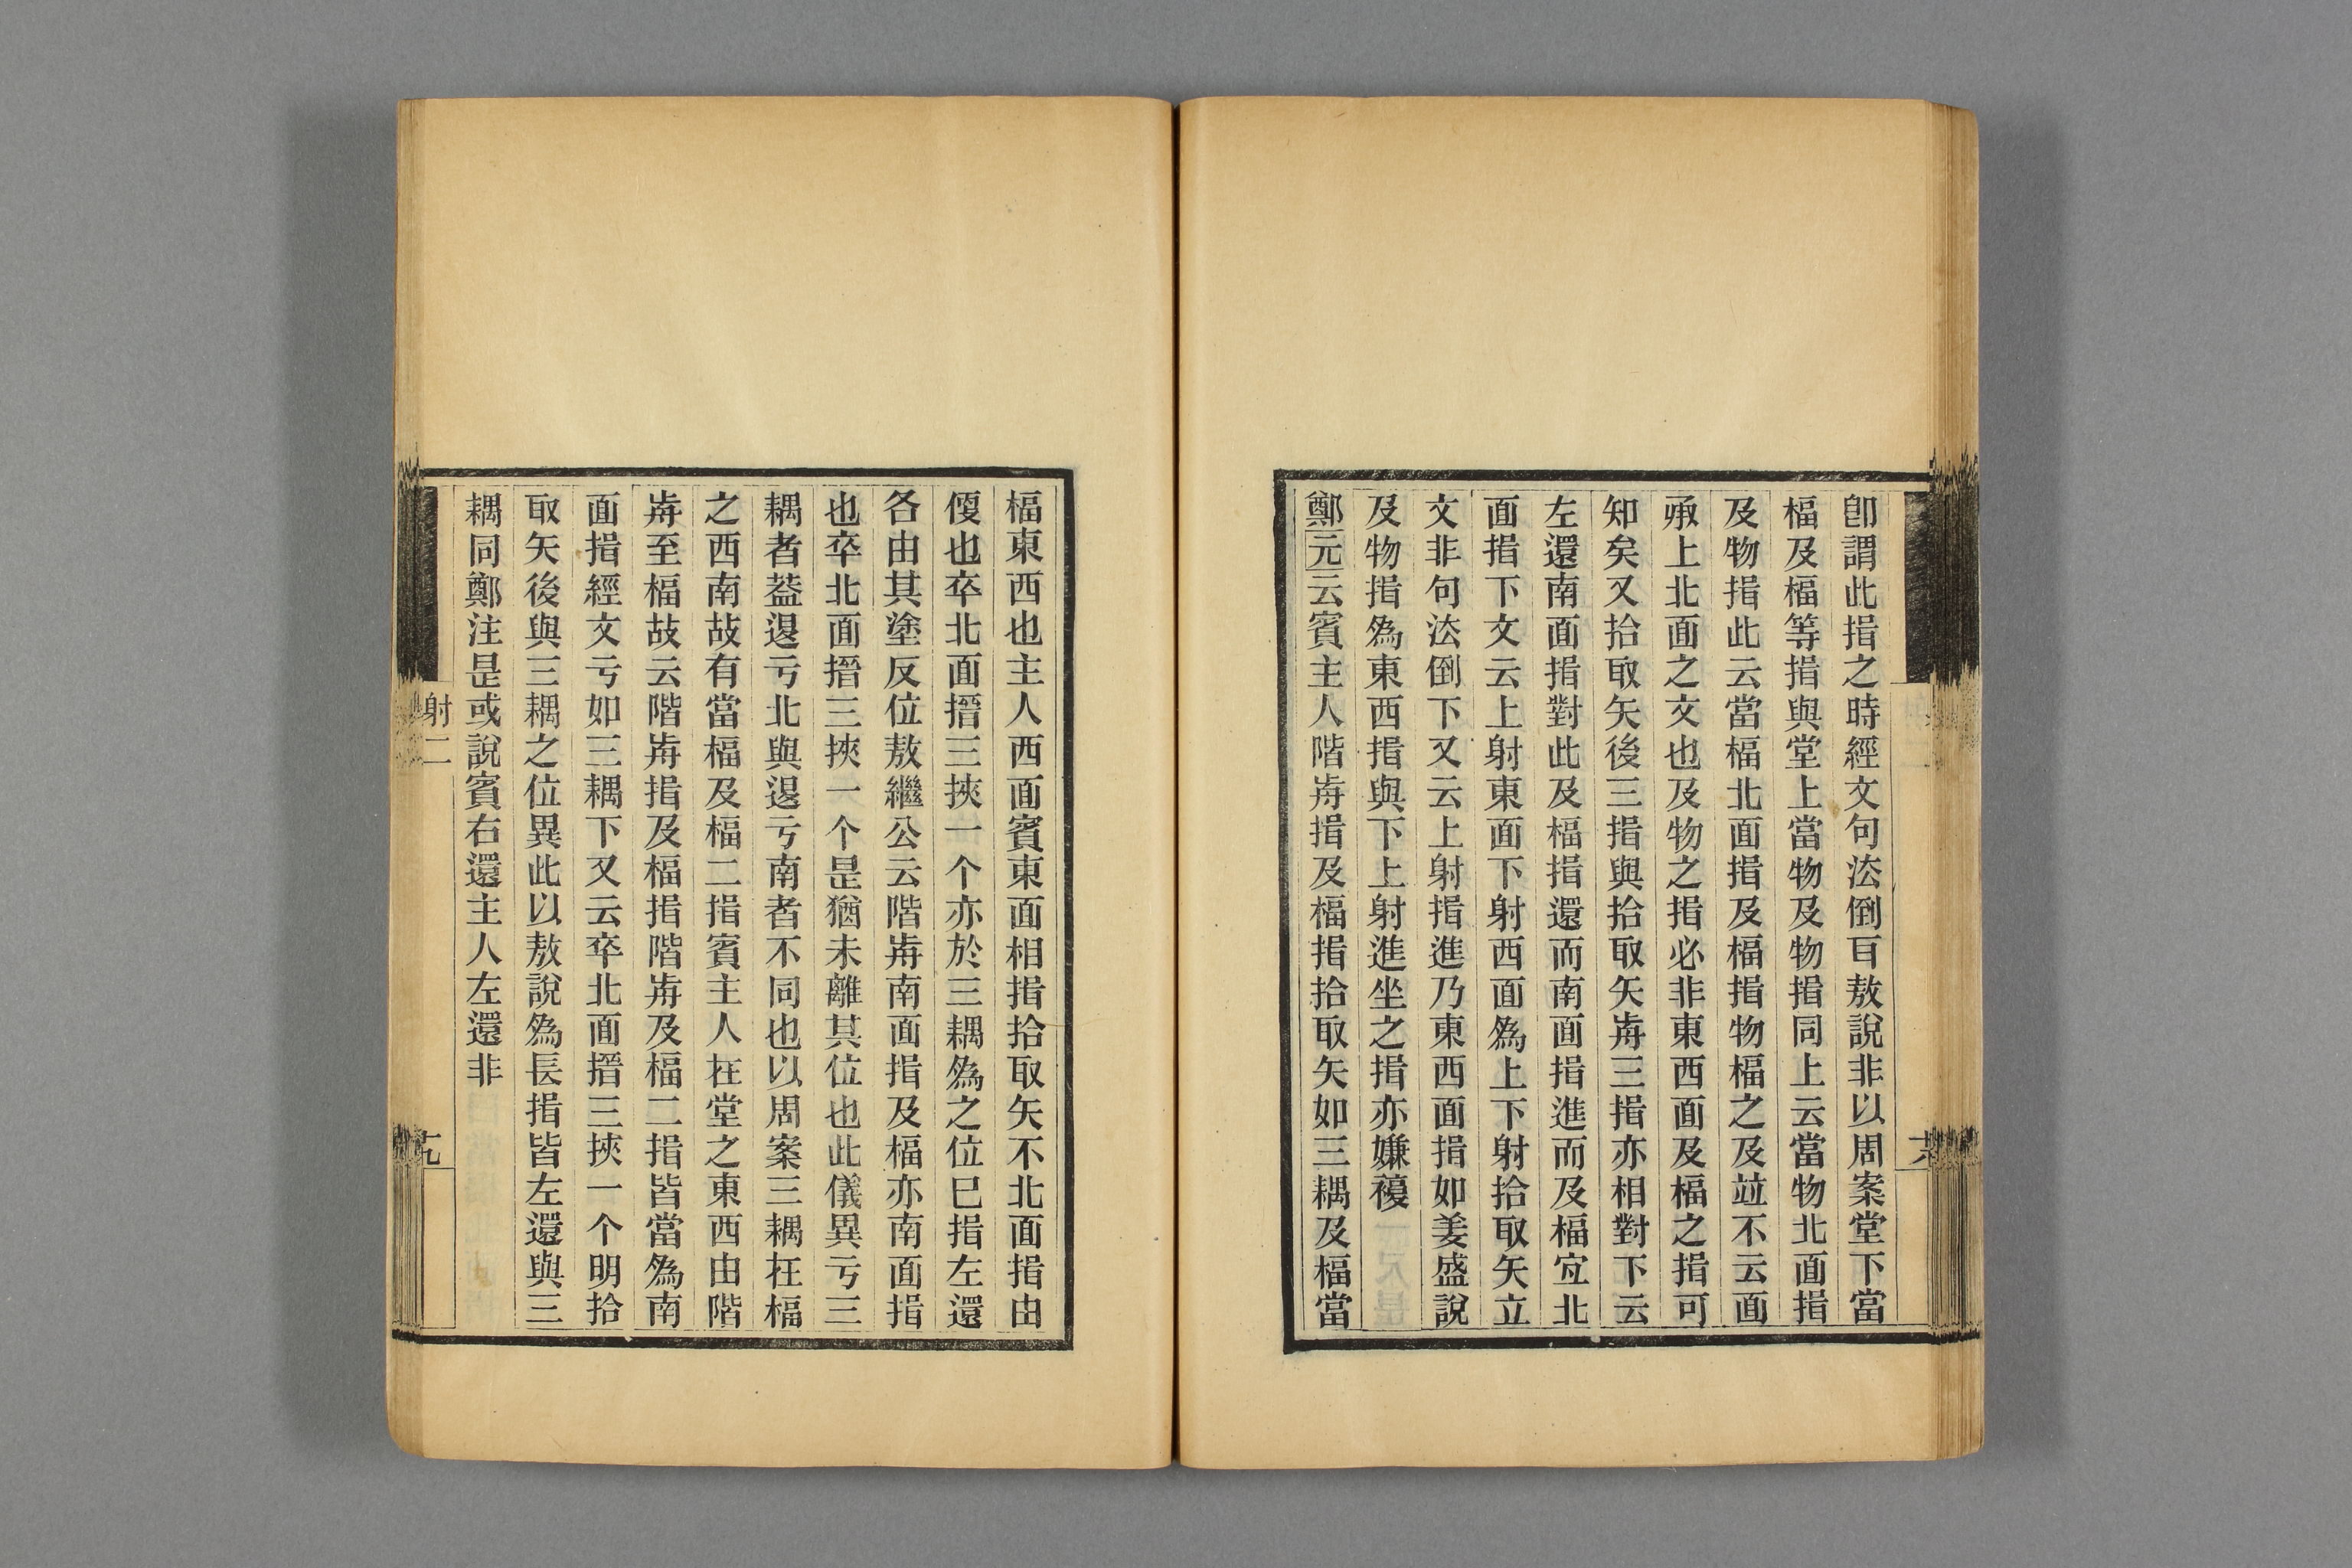 卽謂此揖之時經文句㳒倒耳敖說非以周案堂下當
楅及楅等揖與堂上當物及物揖同上云當物北面揖
及物揖此云當楅北面揖及楅揖物楅之及竝不云面
承上北面之文也及物之揖必非東西面及楅之揖可
知矣又拾取矢後三揖與拾取矢歬三揖亦相對下云
左還南面揖對此及楅揖還而南面揖進而及楅宐北
面揖下文云上射東面下射西面爲上下射拾取矢立
文非句㳒倒下又云上射揖進乃東西面揖如姜盛說
及物揖爲東西揖與下上射進坐之揖亦嫌複
鄭元云賓主人階歬揖及楅揖拾取矢如三耦及楅當
楅東西也主人西面賓東面相揖拾取矢不北面揖由
便也卒北面搢三挾一个亦於三耦爲之位巳揖左還
各由其塗反位敖繼公云階歬南面揖及楅亦南面揖
也卒北面搢三挾一个是猶未離其位也此儀異亏三
耦者葢退亏北與退亏南者不同也以周案三耦在楅
之西南故有當楅及楅二揖賓主人在堂之東西由階
歬至楅故云階歬揖及楅揖階歬及楅二揖皆當爲南
面揖經文亏如三耦下又云卒北面搢三挾一个明拾
取矢後與三耦之位異此以敖說爲長揖皆左還與三
耦同鄭注是或說賓右還主人左還非
射二